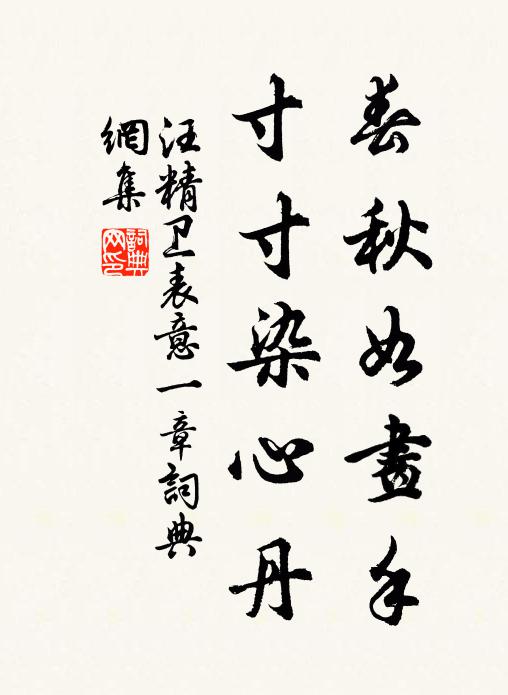 春秋如畫手
寸寸染心丹
汪精卫表意一章詞典
網集
詞典
网印